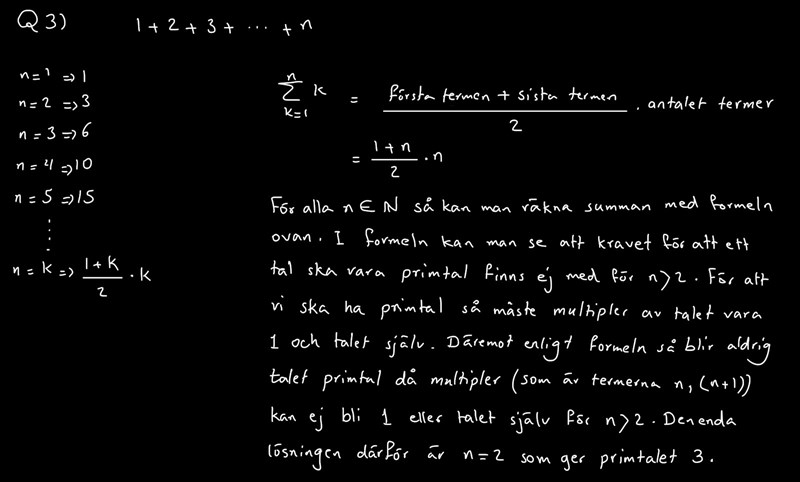 Q3) 1+2+3+ ... +n
n=1 => 1
n=2 => 3
n=3 => 6
n=4 => 10
n=5 => 15
⋮
n=k => (1+k)/2 · k
n
∑ k = (första termen + sista termen)/2 . antalet termer
k=1
= (1+n)/2 · n
För alla n ∈ ℕ så kan man räkna summan med formeln
ovan. I formeln kan man se att kravet för att ett
tal ska vara primtal finns ej med för n>2. För att
vi ska ha primtal så måste multipler av talet vara
1 och talet själv. Däremot enligt formeln så blir aldrig
talet primtal då multipler (som är termerna n, (n+1))
kan ej bli 1 eller talet själv för n>2. Den enda
lösningen därför är n=2 som ger primtalet 3.